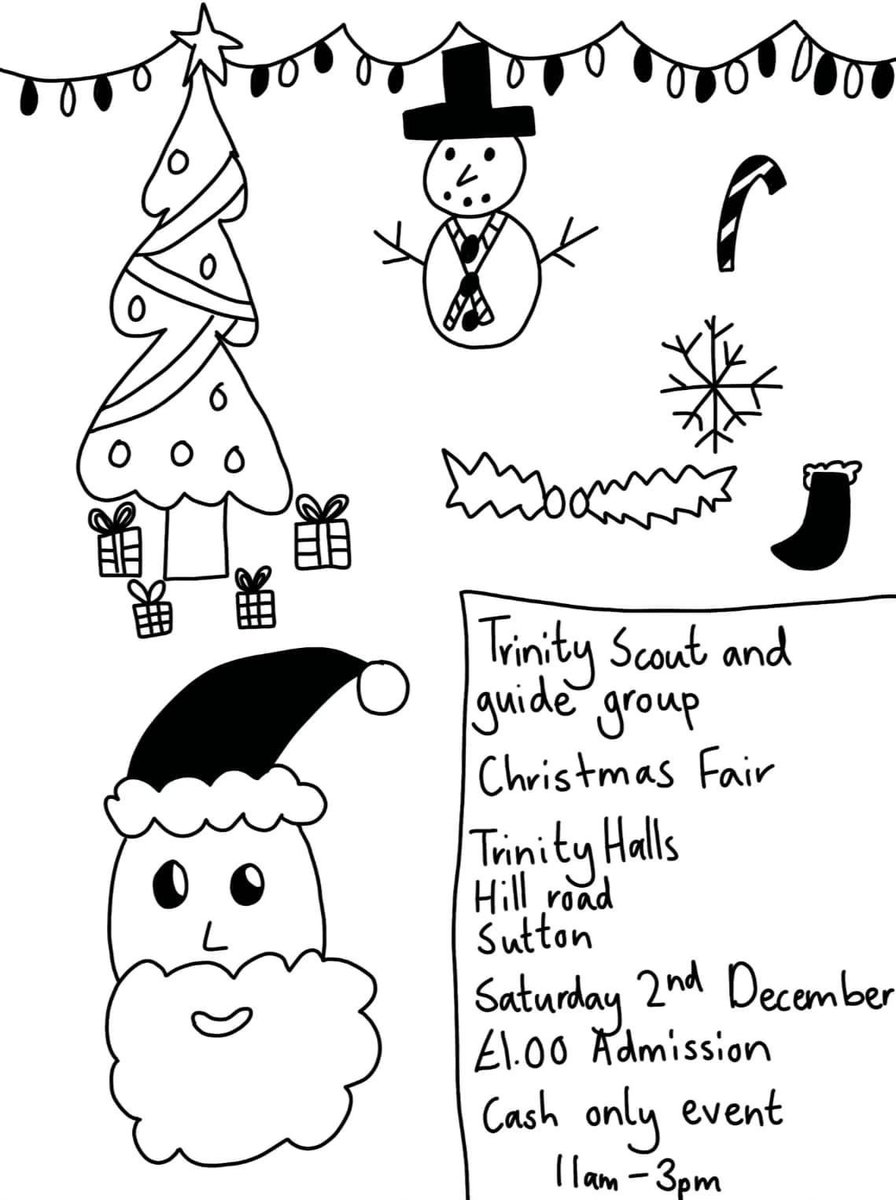 Trinity Scout and
guide group
Christmas Fair
Trinity Halls
Hill road
Sutton
Saturday 2nd December
£1.00 Admission
Cash only event
11am - 3pm